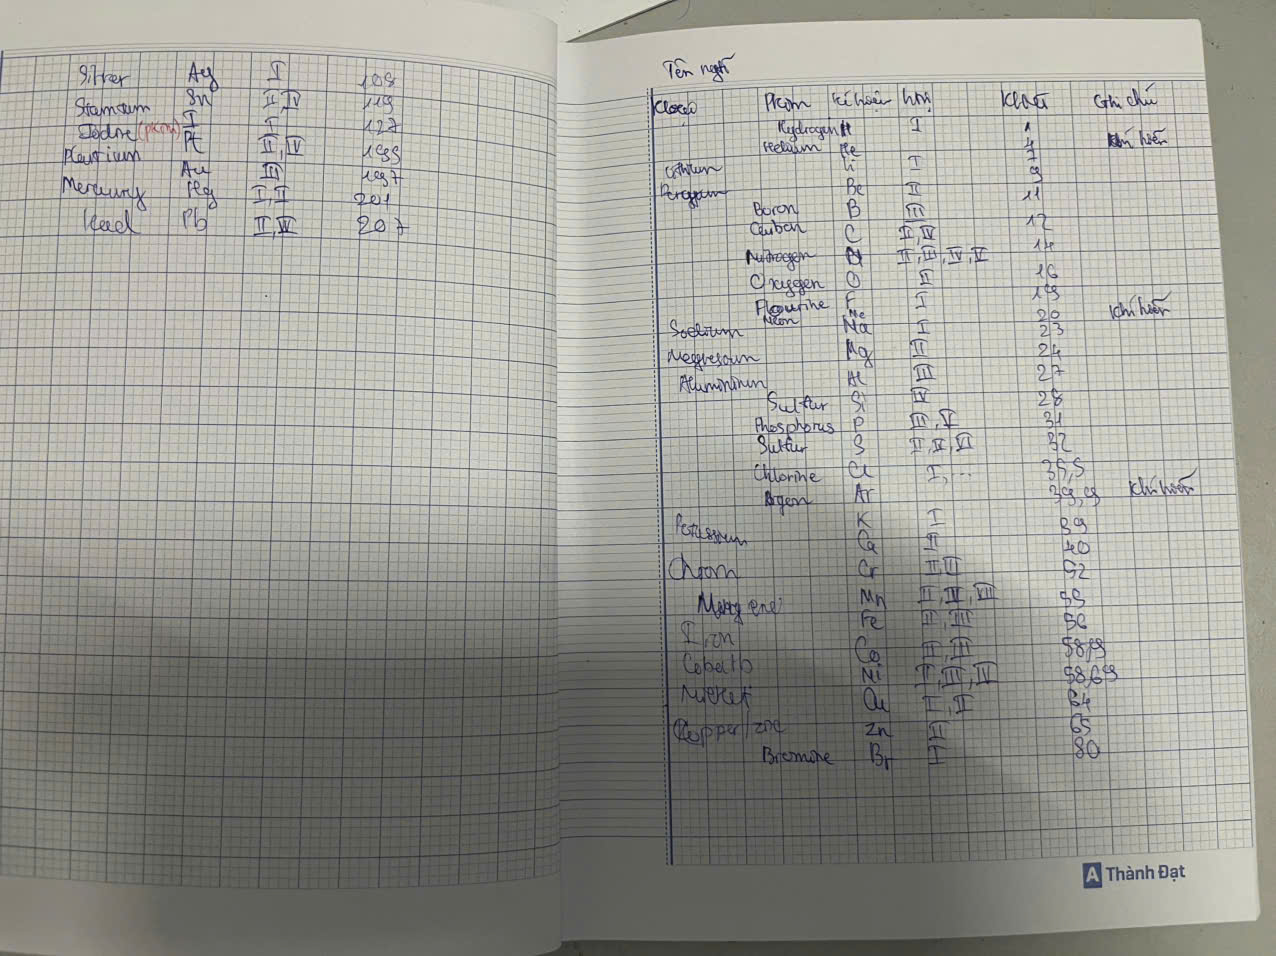 Silver Ag I 108
Stanium Sn II, IV 119
Iodine (pkim) I I 127
Platium Pt II, IV 195
Au III 197
Mercury Hg I, II 201
Lead Pb II, IV 207
Tên ngtố
Kloại Pkim Kí hiệu htrị Khtử Ghi chú
Hydrogen H I 1
Helium He 4 khí hiếm
Lithium Li I 7
Be II 9
Boron B III 11
Carbon C II, IV 12
Nitrogen N II, III, IV, V 14
Oxygen O II 16
Flourine F I 19
Neon Ne 20 khí hiếm
Sodium Na I 23
Mg II 24
Aluminium Al III 27
Sulfur Si IV 28
Phosphorus P III, V 31
Sulfur S II, IV, VI 32
Chlorine Cl I, ... 35,5
Argon Ar 39,9 khí hiếm
Potassium K I 39
Ca II 40
Chrom Cr II, III 52
Mn II, IV, VII 55
Iron Fe II, III 56
Cobalt Co II, III 58,9
Nickel Ni II, III, IV 58,69
Copper Cu I, II 64
znc Zn II 65
Bromine Br I 80
A Thành Đạt